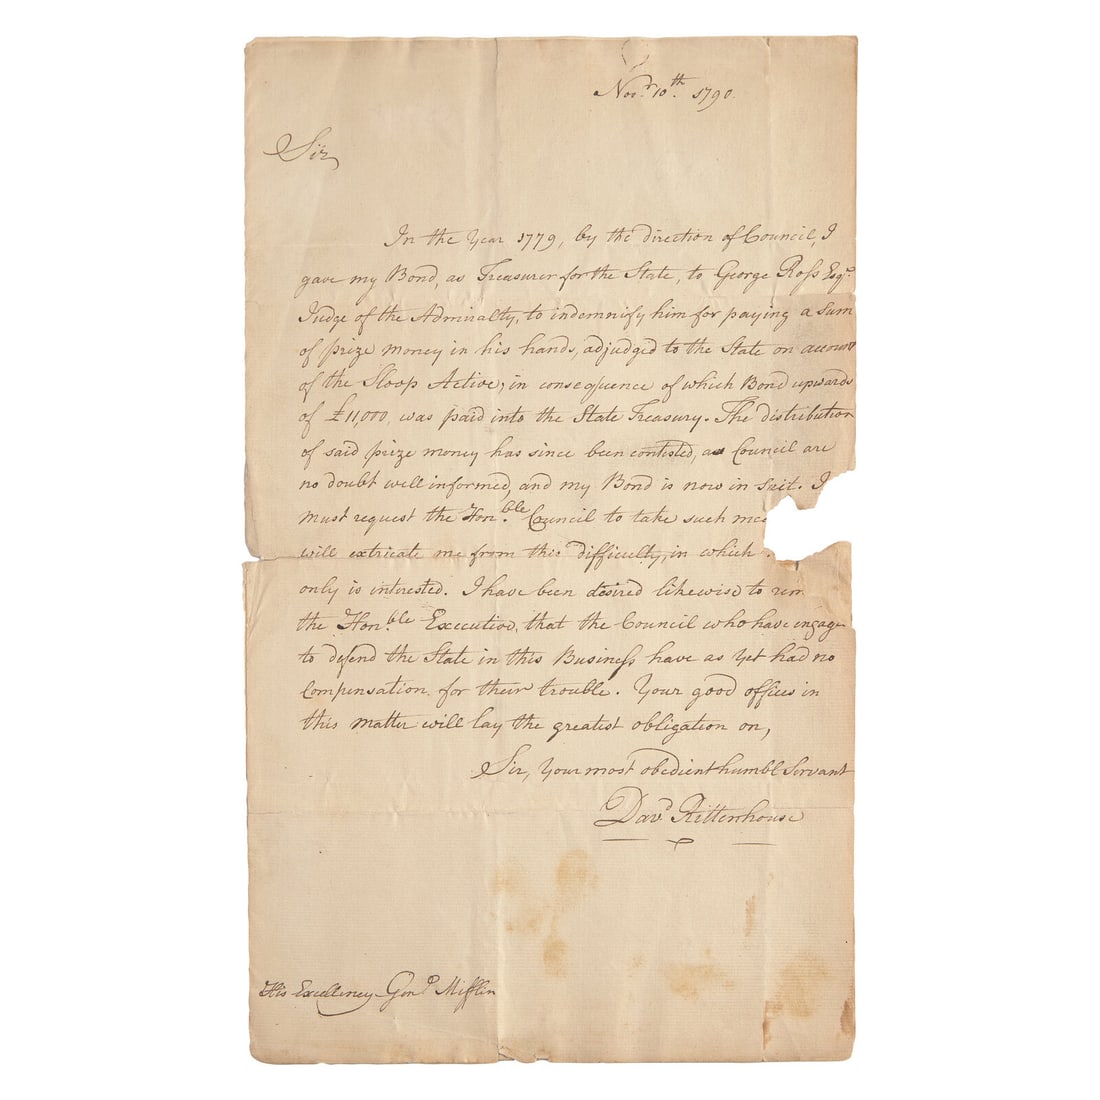 Novr. 10th. 1790.
Sir
In the Year 1779, by the direction of Council, I
gave my Bond, as Treasurer for the State, to George Ross Esqr.
Judge of the Admiralty, to indemnify him for paying a Sum
of prize money in his hands, adjudged to the State on account
of the Sloop Active, in consequence of which Bond upwards
of £11,000, was paid into the State Treasury. The distribution
of said prize money has since been contested, as Council are
no doubt well informed, and my Bond is now in suit. I
must request the Honble. Council to take such
will extricate me from this difficulty, in which
only is interested. I have been desired likewise to
the Honble. Executive, that the Council who have engage
to defend the State in this Business have as yet had no
Compensation for their trouble. Your good offices in
this matter will lay the greatest obligation on,
Sir, Your most obedient humble Servant
Davd. Rittenhouse
His Excellency Genl. Mifflin